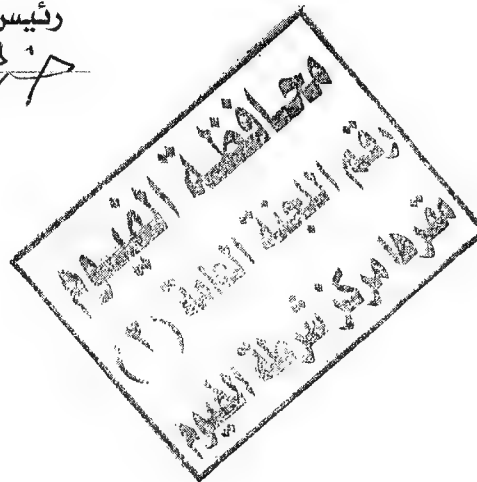 رئيس
محافظة الفيوم
رقم اللجنة العامة (٢)
مقرها مركز شرطة الفيوم